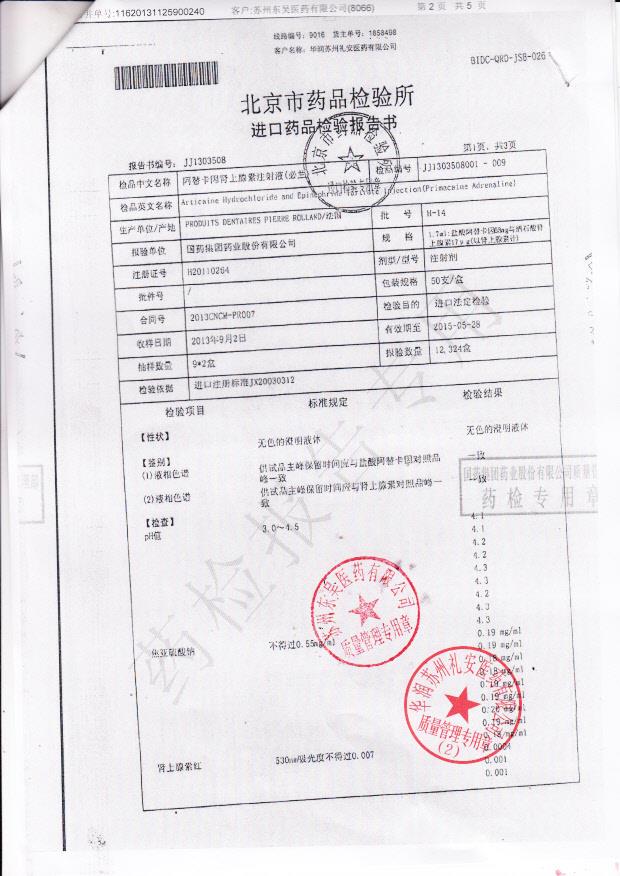 单号:11620131125900240 客户:苏州东吴医药有限公司(8066) 第 2 页 共 5 页
线路编号: 9016 货主单号: 1858498
客户名称: 华润苏州礼安医药有限公司
BIDC-QRD-JSB-026
北京市药品检验所
进口药品检验报告书
报告书编号: JJ1303508 第1页, 共3页
检品中文名称 阿替卡因肾上腺素注射液(必兰 检品编号 JJ1303508001 - 009
检品英文名称 Articaine Hydrochloride and Epinephrine Tartrate Injection(Primacaine Adrenaline)
生产单位/产地 PRODUITS DENTAIRES PIERRE ROLLAND/法国 批 号 H-14
报验单位 国药集团药业股份有限公司 规 格 1.7ml:盐酸阿替卡因68mg与酒石酸肾上腺素17μg(以肾上腺素计)
注册证号 H20110264 剂型/型号 注射剂
批件号 / 包装规格 50支/盒
合同号 2013CNCM-PR007 检验目的 进口法定检验
收样日期 2013年9月2日 有效期至 2015-05-28
抽样数量 9*2盒 报验数量 12,324盒
检验依据 进口注册标准JX20030312
检验项目 标准规定 检验结果
【性状】 无色的澄明液体 无色的澄明液体
【鉴别】
(1)液相色谱 供试品主峰保留时间应与盐酸阿替卡因对照品峰一致 一致
(2)液相色谱 供试品主峰保留时间应与肾上腺素对照品峰一致 一致
国药集团药业股份有限公司质量
药检专用章
【检查】
pH值 3.0～4.5 4.1
4.1
4.2
4.2
4.3
4.3
4.2
4.3
4.3
焦亚硫酸钠 不得过0.55mg/ml 0.19 mg/ml
0.19 mg/ml
0.18 mg/ml
0.18 mg/ml
0.19 mg/ml
0.19 mg/ml
0.20 mg/ml
0.19 mg/ml
0.18 mg/ml
肾上腺素红 530nm吸光度不得过0.007 0.0004
0.001
0.001
北京市药品检验所
苏州东吴医药有限公司
质量管理专用章
华润苏州礼安医药有限公司
质量管理专用章
(2)
药检报告专用